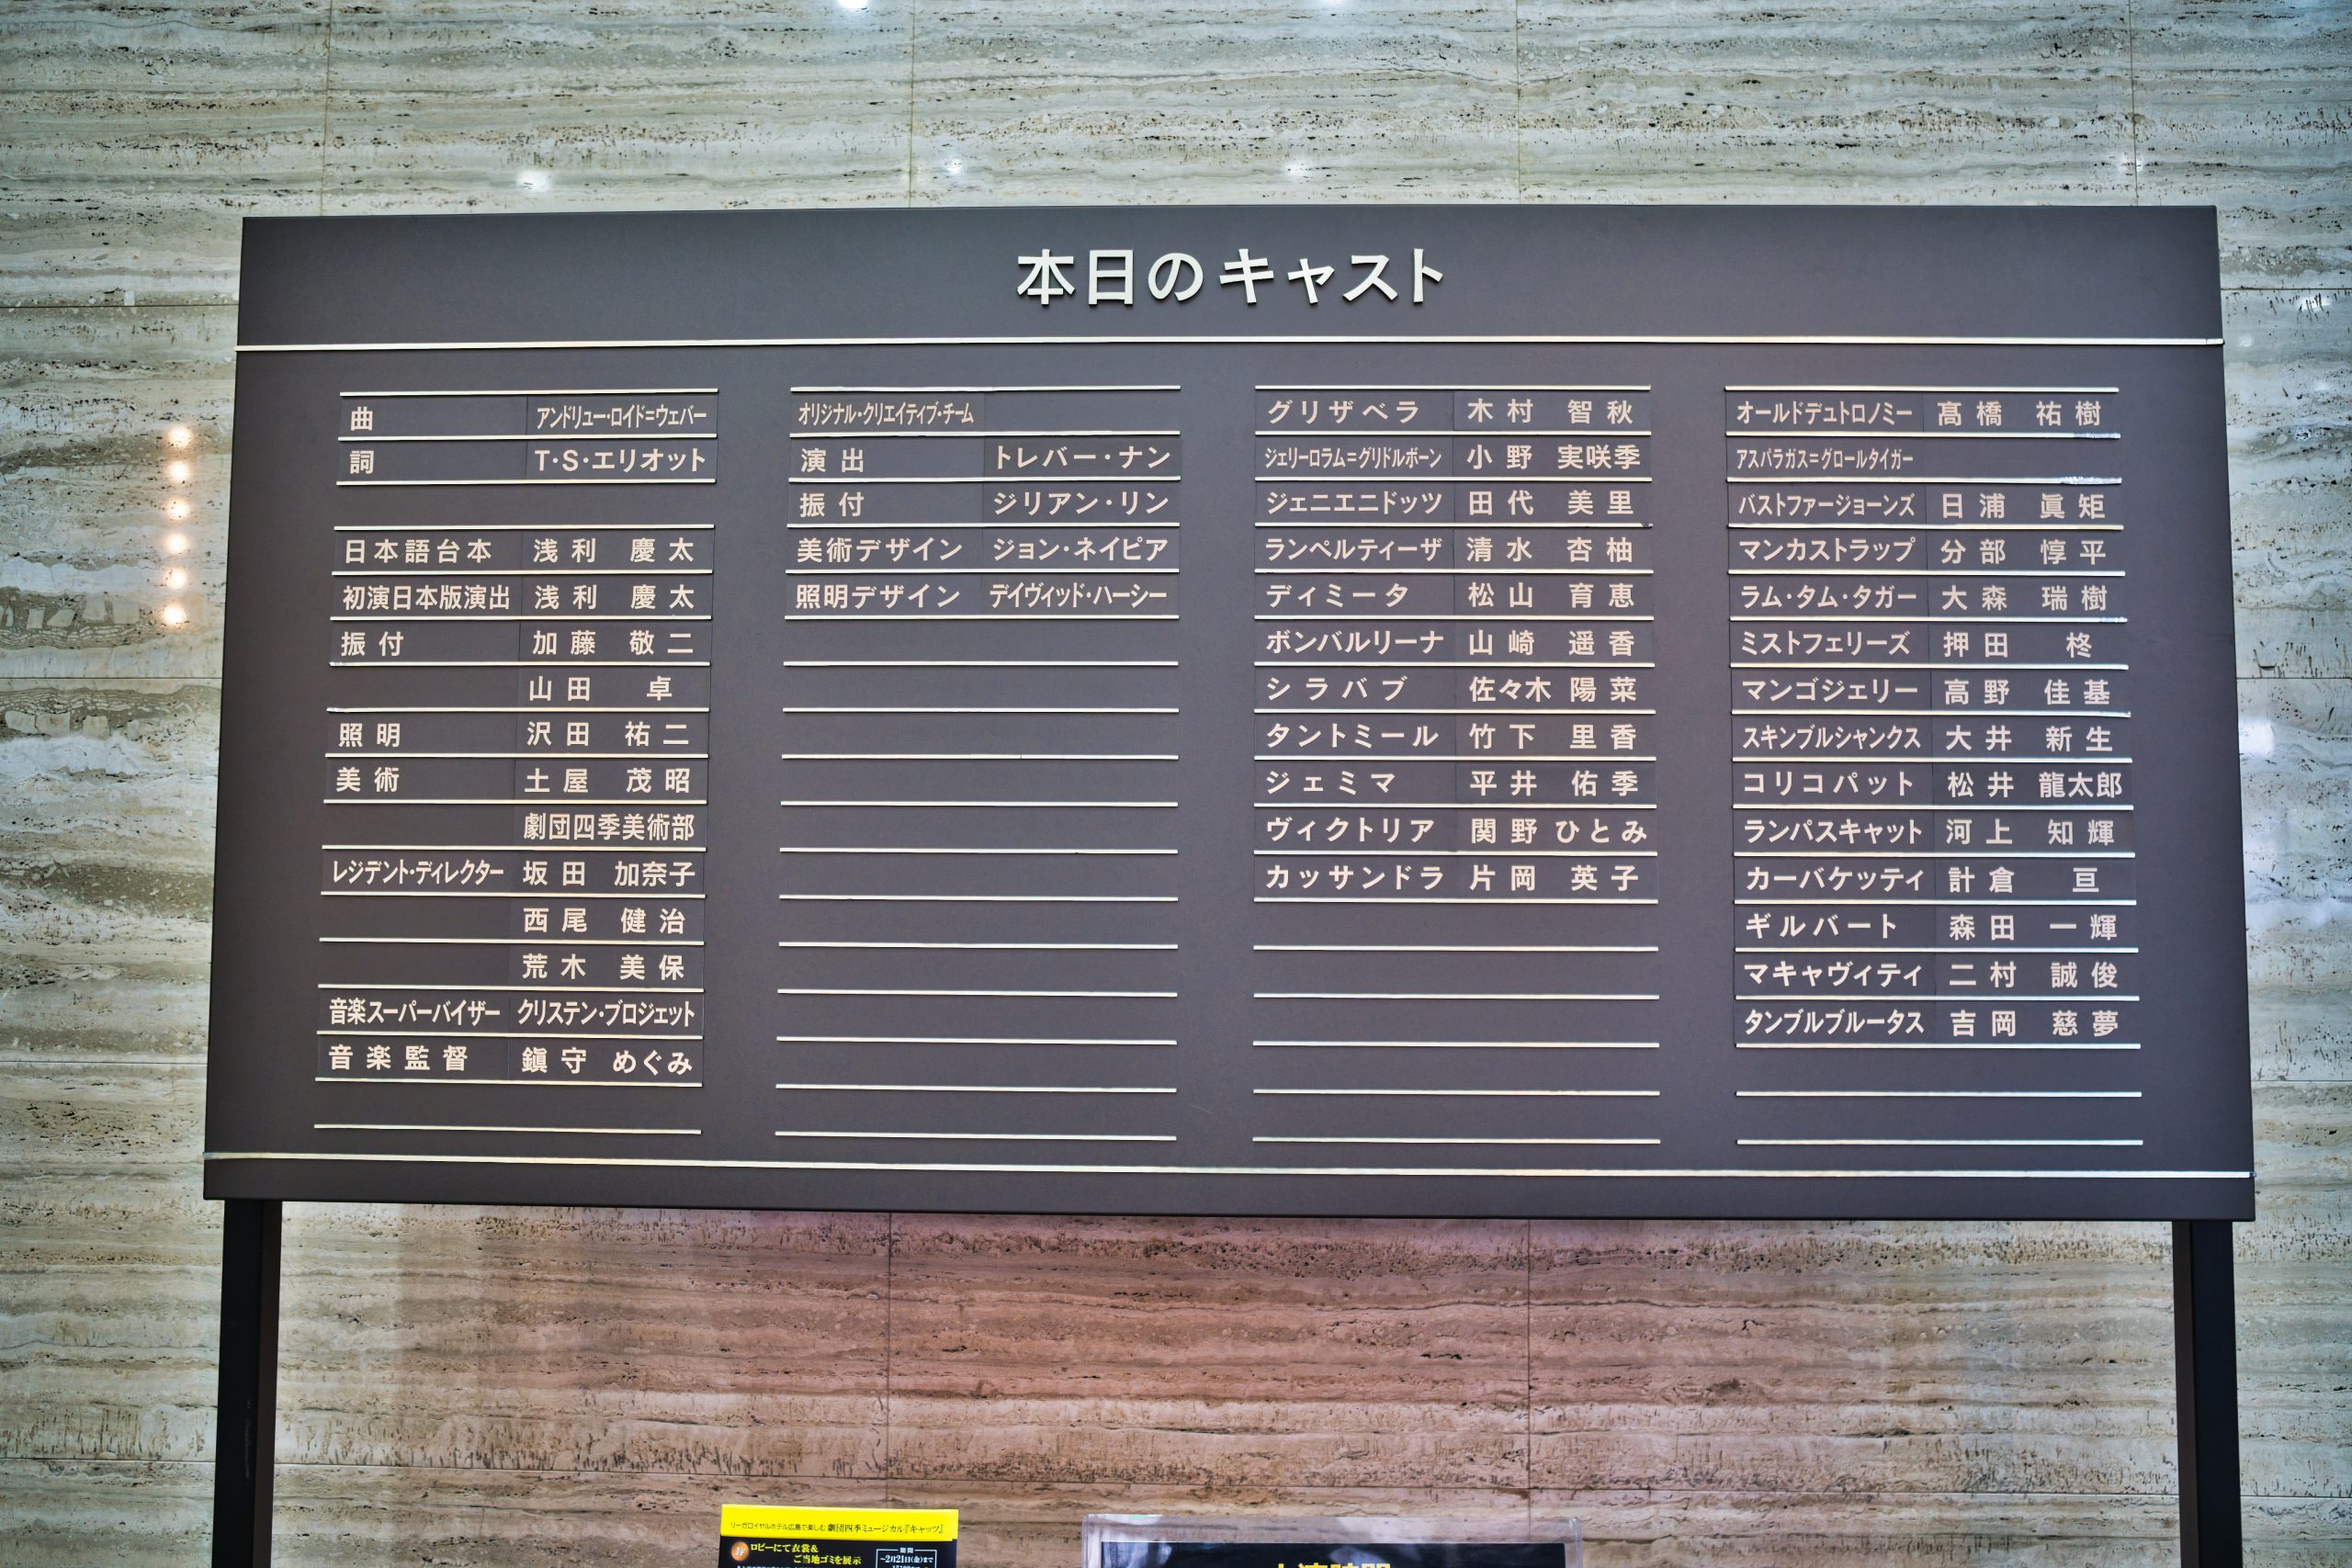 本日のキャスト
曲 アンドリュー・ロイド=ウェバー
詞 T・S・エリオット
日本語台本 浅利 慶太
初演日本版演出 浅利 慶太
振付 加藤 敬二
山田 卓
照明 沢田 祐二
美術 土屋 茂昭
劇団四季美術部
レジデント・ディレクター 坂田 加奈子
西尾 健治
荒木 美保
音楽スーパーバイザー クリステン・ブロジェット
音楽監督 鎭守 めぐみ
オリジナル・クリエイティブ・チーム
演出 トレバー・ナン
振付 ジリアン・リン
美術デザイン ジョン・ネイピア
照明デザイン デイヴィッド・ハーシー
グリザベラ 木村 智秋
ジェリーロラム=グリドルボーン 小野 実咲季
ジェニエニドッツ 田代 美里
ランペルティーザ 清水 杏柚
ディミータ 松山 育恵
ボンバルリーナ 山崎 遥香
シラバブ 佐々木 陽菜
タントミール 竹下 里香
ジェミマ 平井 佑季
ヴィクトリア 関野 ひとみ
カッサンドラ 片岡 英子
オールドデュトロノミー 髙橋 祐樹
アスパラガス=グロールタイガー
バストファージョーンズ 日浦 眞矩
マンカストラップ 分部 惇平
ラム・タム・タガー 大森 瑞樹
ミストフェリーズ 押田 柊
マンゴジェリー 高野 佳基
スキンブルシャンクス 大井 新生
コリコパット 松井 龍太郎
ランパスキャット 河上 知輝
カーバケッティ 計倉 亘
ギルバート 森田 一輝
マキャヴィティ 二村 誠俊
タンブルブルータス 吉岡 慈夢
リーガロイヤルホテル広島で楽しむ 劇団四季ミュージカル『キャッツ』
ロビーにて衣裳&
ご当地ゴミを展示
期間
~2月21日(金)まで